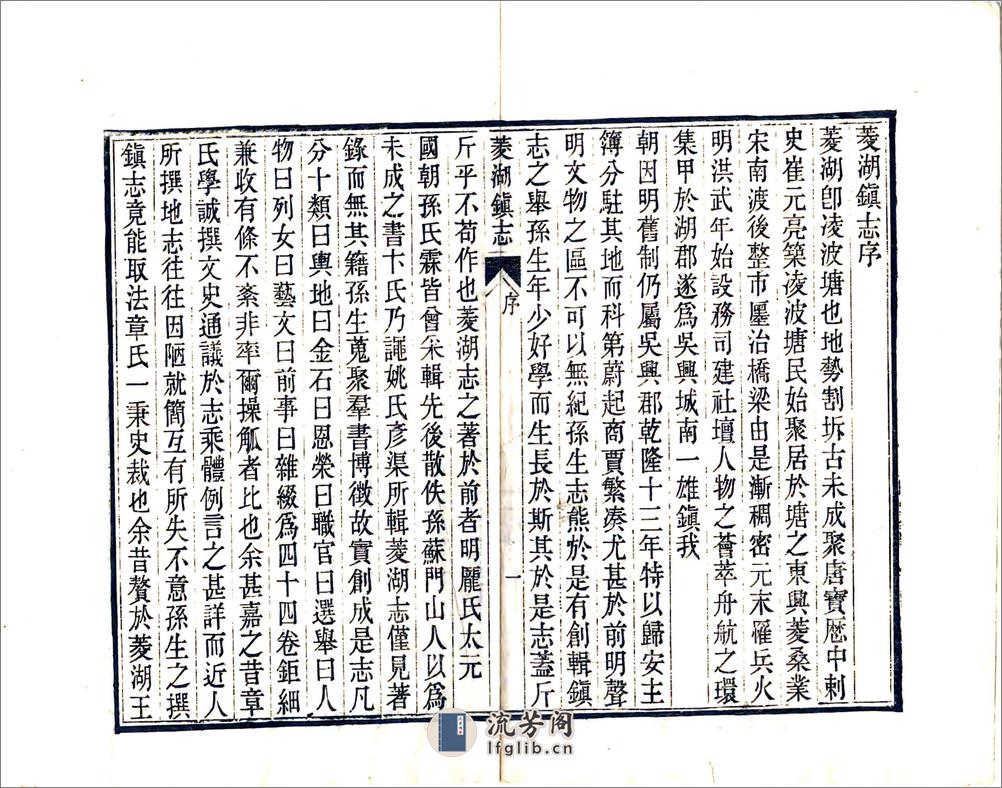 菱湖鎮志序
菱湖卽凌波塘也地勢割坼古未成聚唐寶厯中刺
史崔元亮築凌波塘民始聚居於塘之東興菱桑業
宋南渡後整市廛治橋梁由是漸稠密元末罹兵火
明洪武年始設務司建社壇人物之薈萃舟航之環
集甲於湖郡遂爲吳興城南一雄鎮我
朝因明舊制仍屬吳興郡乾隆十三年特以歸安主
簿分駐其地而科第蔚起商賈繁湊尤甚於前明聲
明文物之區不可以無紀孫生志熊於是有創輯鎮
志之舉孫生年少好學而生長於斯其於是志蓋斤
菱湖鎮志 序 一
斤乎不苟作也菱湖志之著於前者明龎氏太元
國朝孫氏霖皆曾采輯先後散佚孫蘇門山人以爲
未成之書卞氏乃謂姚氏彥渠所輯菱湖志僅見著
錄而無其籍孫生蒐聚羣書博徵故實創成是志凡
分十類曰輿地曰金石曰恩榮曰職官曰選舉曰人
物曰列女曰藝文曰前事曰雜綴爲四十四卷鉅細
兼收有條不紊非率爾操觚者比也余甚嘉之昔章
氏學誠撰文史通議於志乘體例言之甚詳而近人
所撰地志往往因陋就簡互有所失不意孫生之撰
鎮志竟能取法章氏一秉史裁也余昔贅於菱湖王
流芳阁
lfglib.cn